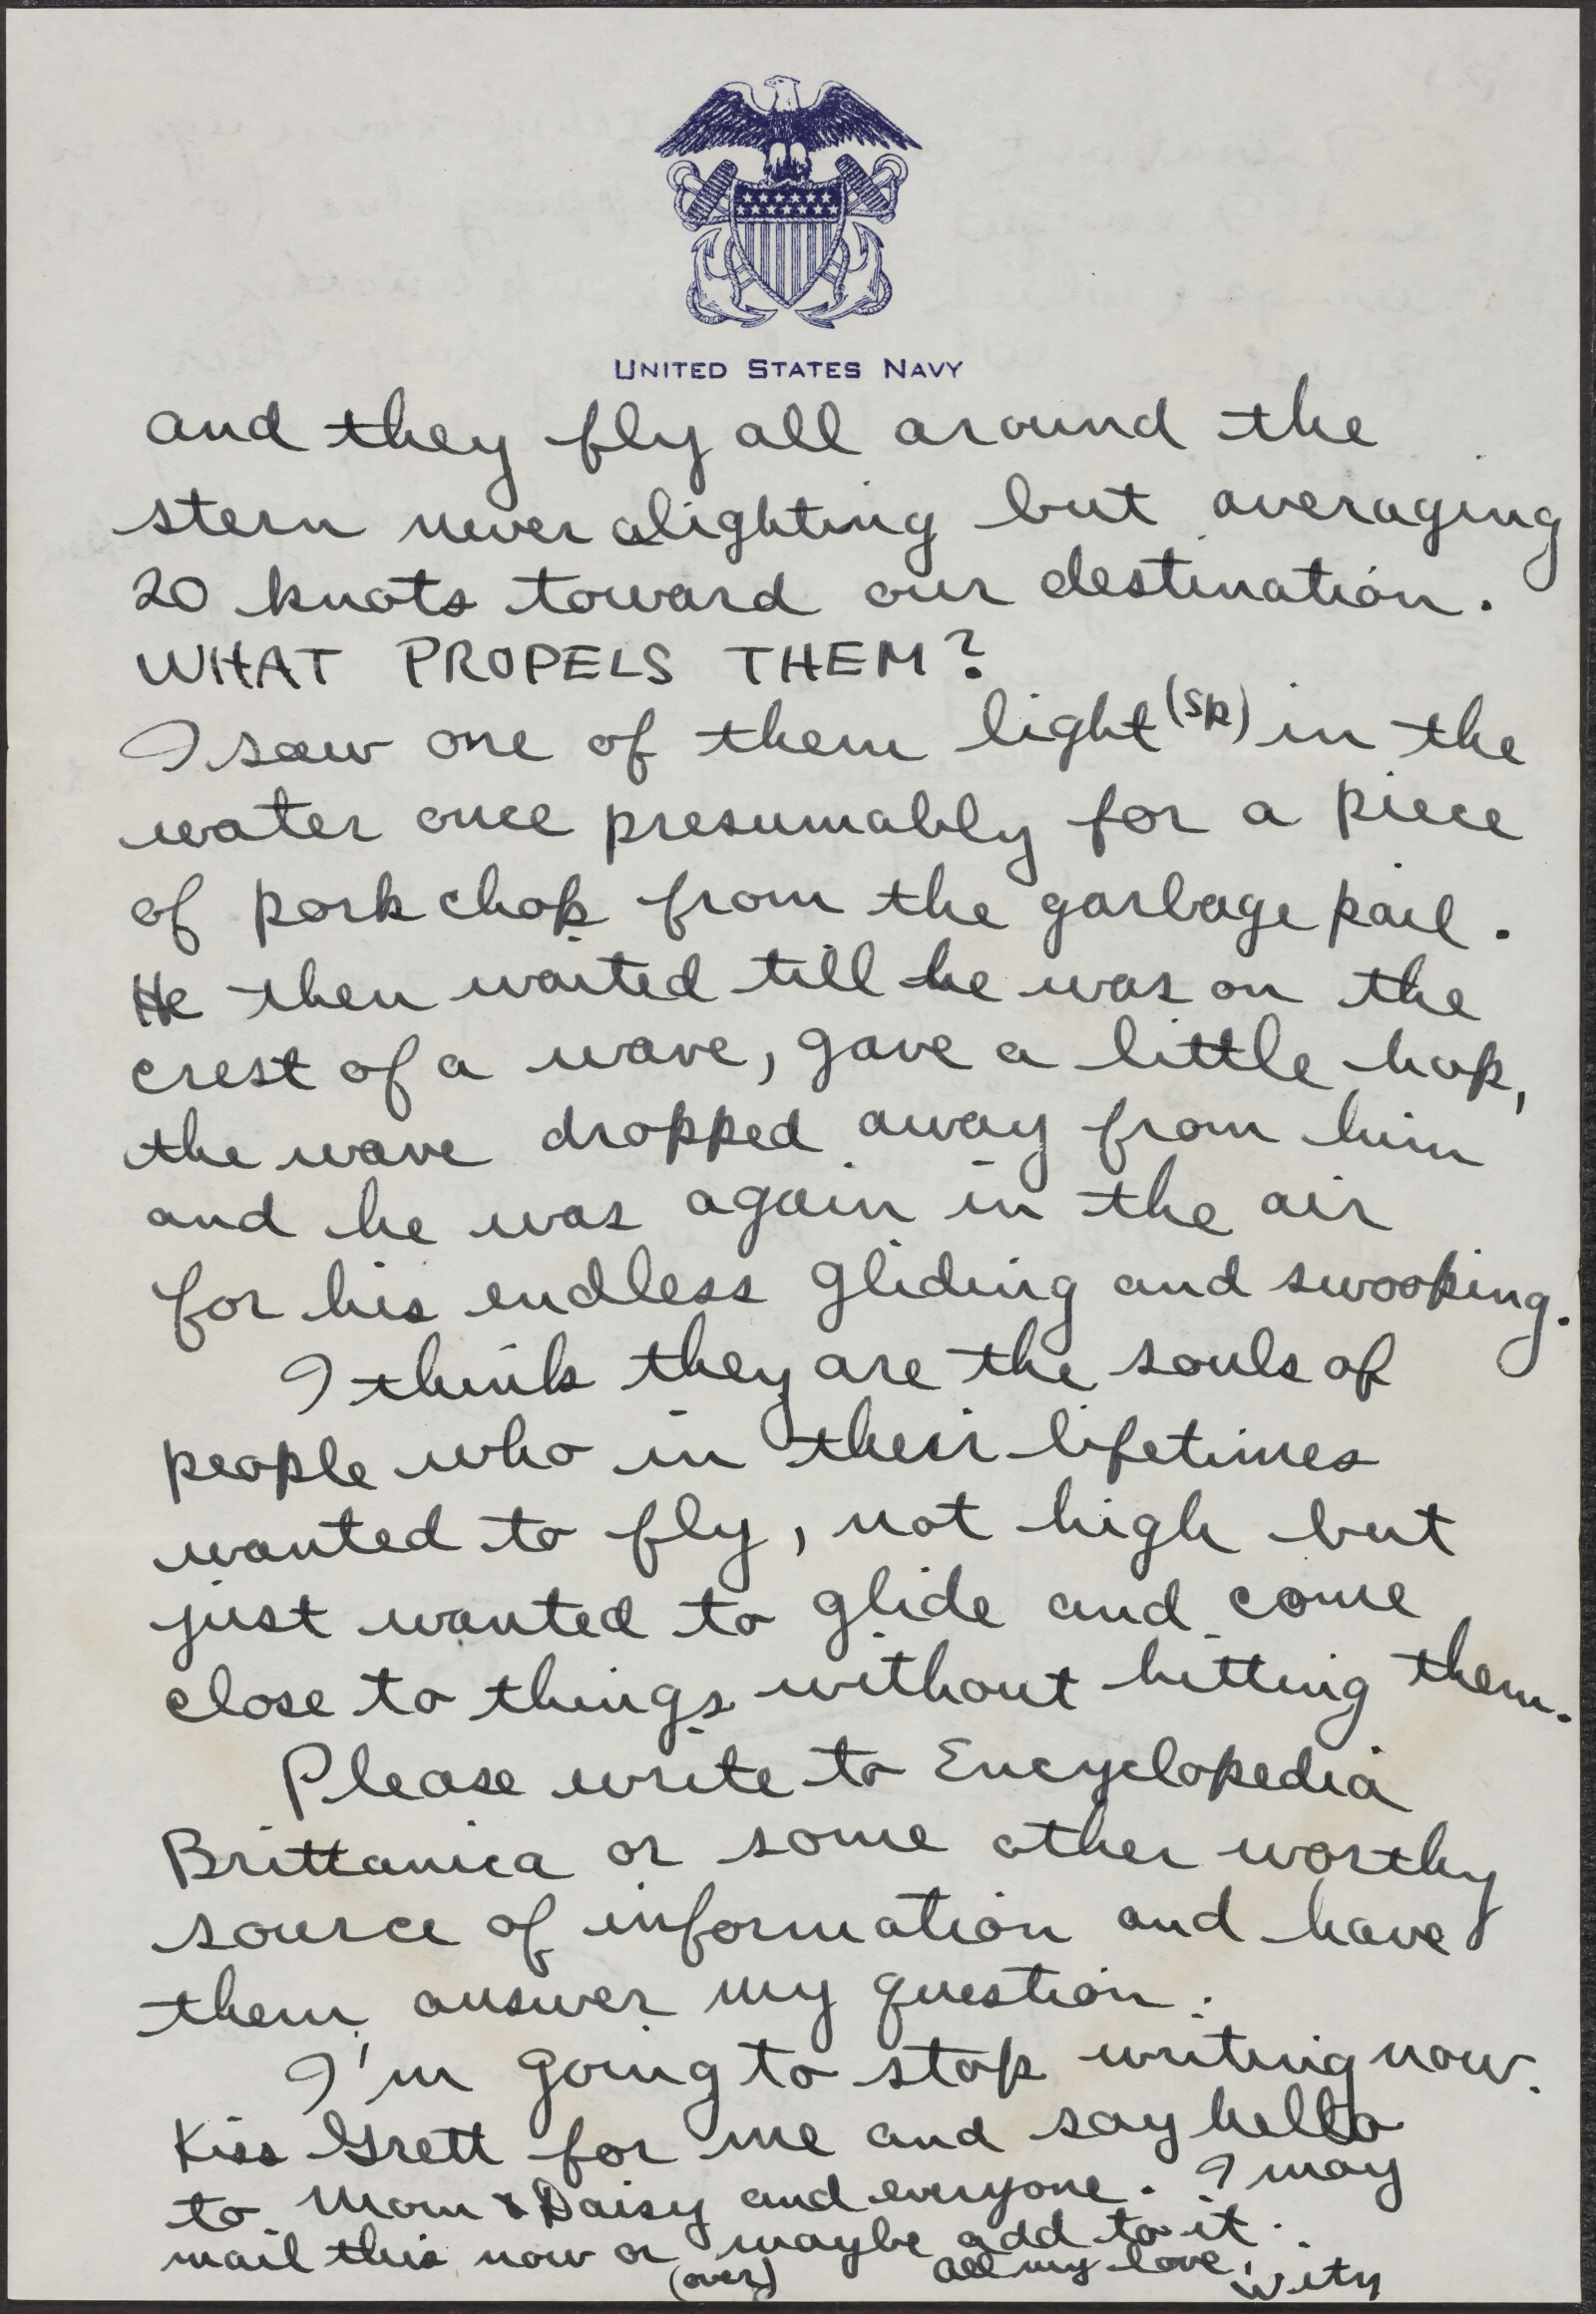 UNITED STATES NAVY
and they fly all around the
stern never alighting but averaging
20 knots toward our destination.
WHAT PROPELS THEM?
I saw one of them light (sp) in the
water once presumably for a piece
of pork chop from the garbage pail.
He then waited till he was on the
crest of a wave, gave a little hop,
the wave dropped away from him
and he was again in the air
for his endless gliding and swooping.
I think they are the souls of
people who in their lifetimes
wanted to fly, not high but
just wanted to glide and come
close to things without hitting them.
Please write to Encyclopedia
Brittanica or some other worthy
source of information and have
them answer my question.
I'm going to stop writing now.
Kiss Grett for me and say hello
to Mom & Daisy and everyone. I may
mail this now or maybe add to it.
(over) all my love,